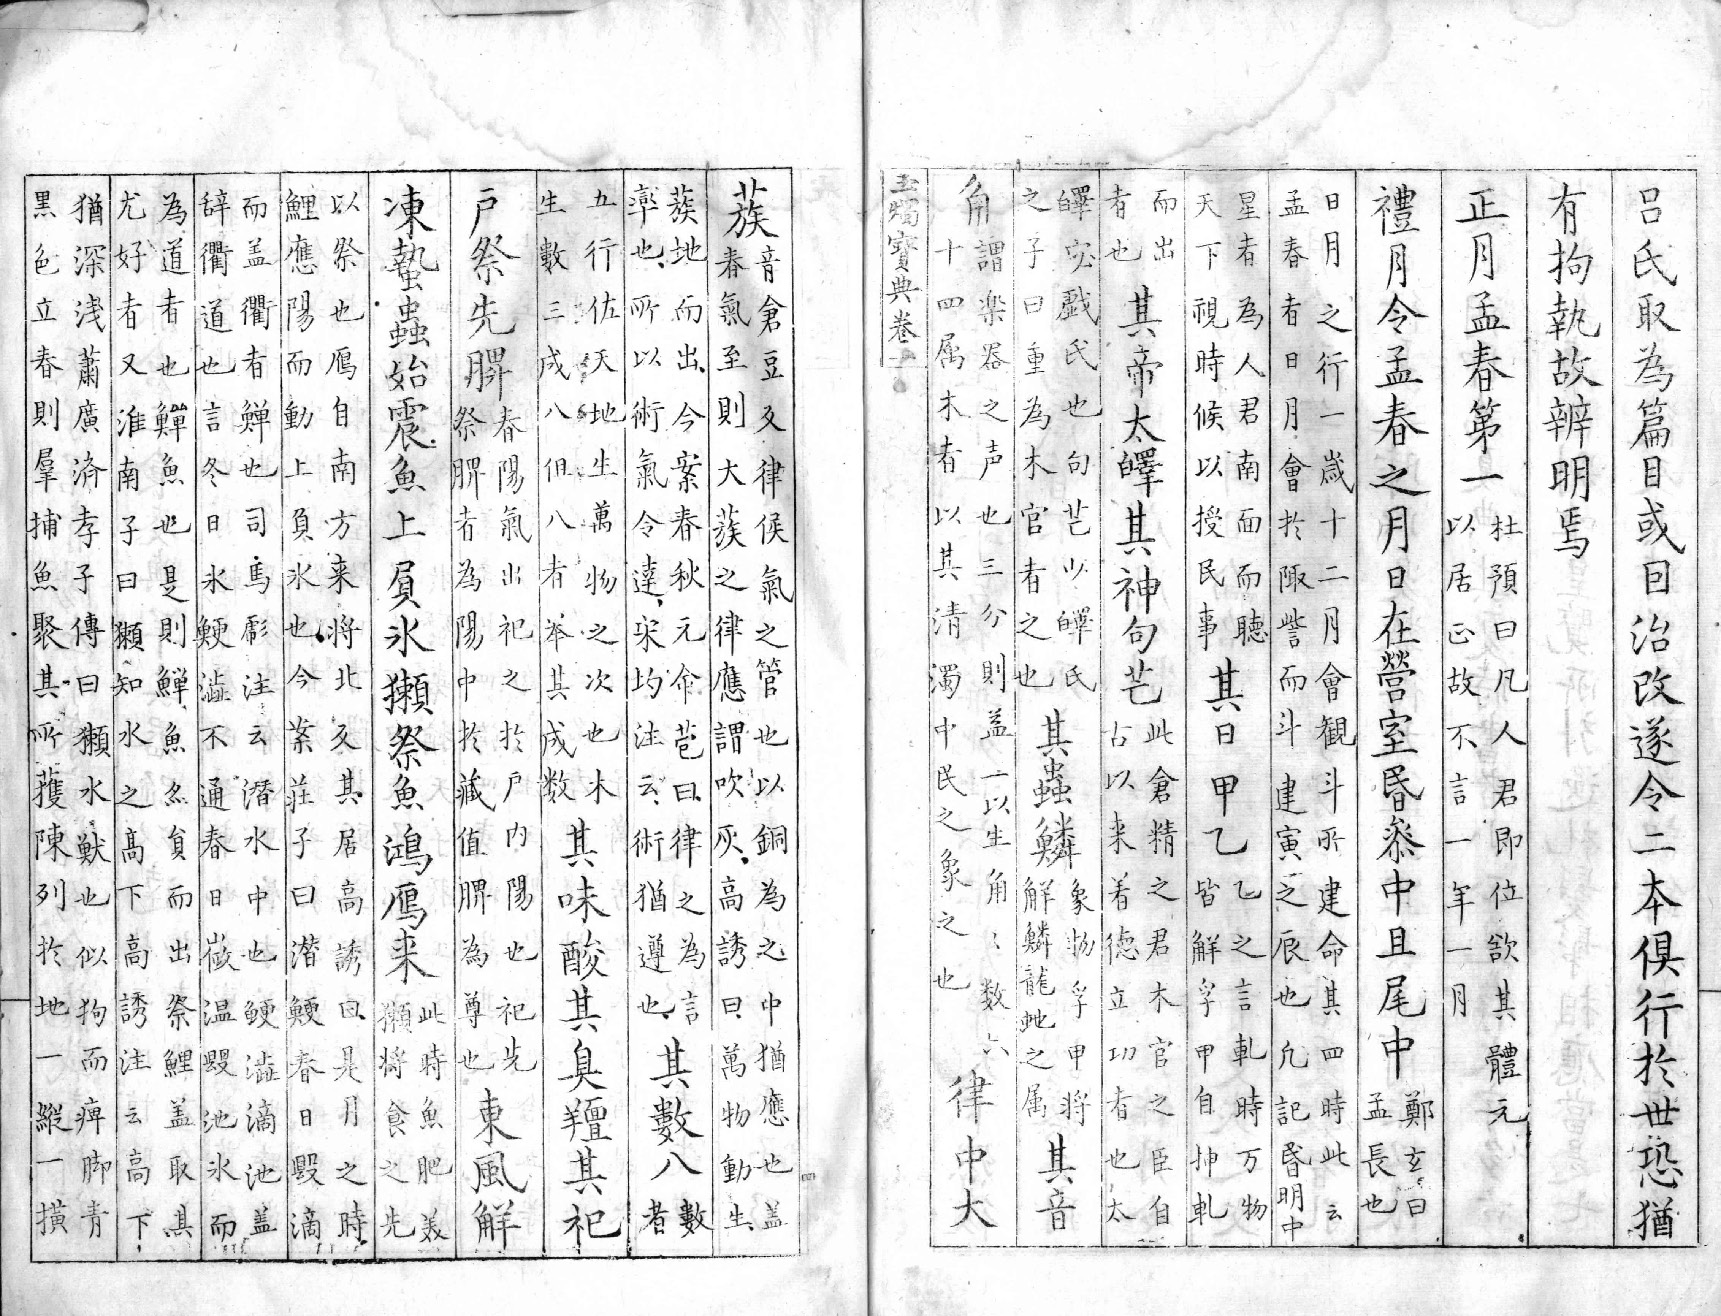 呂氏取為篇目或曰治改遂令二本俱行於世恐猶
有拘執故辨明焉
正月孟春第一
杜預曰凡人君即位欲其體元
以居正故不言一年一月
禮月令孟春之月日在營室昏叅中旦尾中
鄭玄曰
孟長也
日月之行一歲十二月會観斗所建命其四時此云
孟春者日月會於陬訾而斗建寅之辰也凢記昏明中
星者為人君南面而聴
天下視時候以授民事
其日甲乙
乙之言軋時万物
皆解孚甲自抻軋
而出
者也
其帝太皥其神句芒
此倉精之君木官之臣自
古以来着德立功者也太
皥宓戲氏也句芒少皥氏
之子曰重為木官者之也
其蟲鱗
象物孚甲将
解鱗龍虵之属
其音
角
謂楽器之声也三分則益一以生角〻数六
十四属木者以其清濁中民之象之也
律中大
玉燭寳典卷一
蔟
音倉豆又律侯氣之管也以銅為之中猶應也盖
春氣至則大蔟之律應謂吹灰高誘曰萬物動生
蔟地而出今案春秋元命苞曰律之為言
率也所以術氣令達宋均注云術猶遵也
其數八
數
者
五行佐天地生萬物之次也木
生數三成八但八者举其成数
其味酸其臭羶其祀
户祭先脾
春陽氣出祀之於户内陽也祀先
祭脾者為陽中於藏值脾為尊也
東風解
凍蟄蟲始震魚上負氷獺祭魚鴻鴈来
此時魚肥美
獺将食之先
以祭也鴈自南方来将北反其居高誘曰是月之時
鯉應陽而動上負氷也今案莊子曰潛鯁春日毀滴
而盖衢者鱓也司馬彪注云潛水中也鯁澁滴池盖
辞衢道也言冬日氷鯁澁不通春日微温毀池氷而
為道者也鱓魚也是則鱓魚么負而出祭鯉盖取其
尤好者又淮南子曰獺知水之高下高誘注云高下
猶深浅蕭廣済孝子傳曰獺水獣也似狗而痺脚青
黒色立春則羣捕魚聚其所獲陳列於地一縱一横